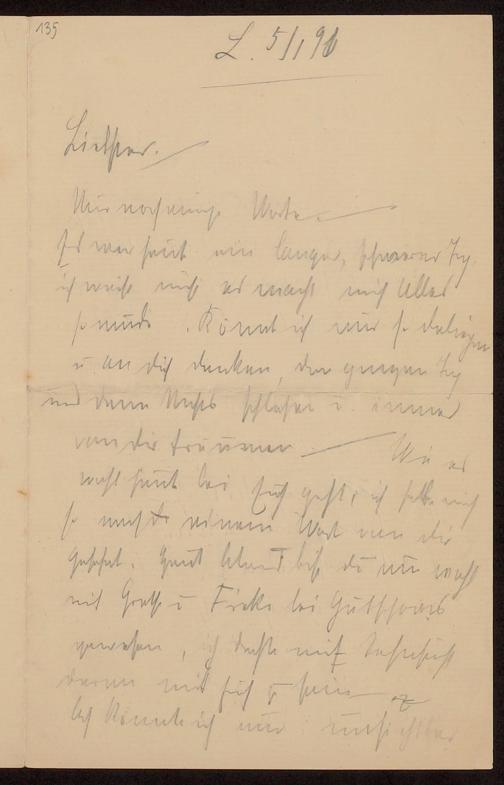 135
L. 5/1 91
Liebster.
Nur noch einige Worte.
Es war heut ein langer, schwerer Tag
ich weiß nicht es macht mich Alles
so müde. Könnt ich nur so daliegen
u. an dich denken, den ganzen Tag
und dann Nachts schlafen u immer
von dir träumen Wie es
wohl heut bei Euch geht, ich habe mich
so nach einem Wort von dir
gesehnt. Heut Abend bist du nun wohl
mit Grete u Fiete bei
gewesen, ich dachte mit Sehnsucht
daran mit
Ach könnte ich nur unsichtbar